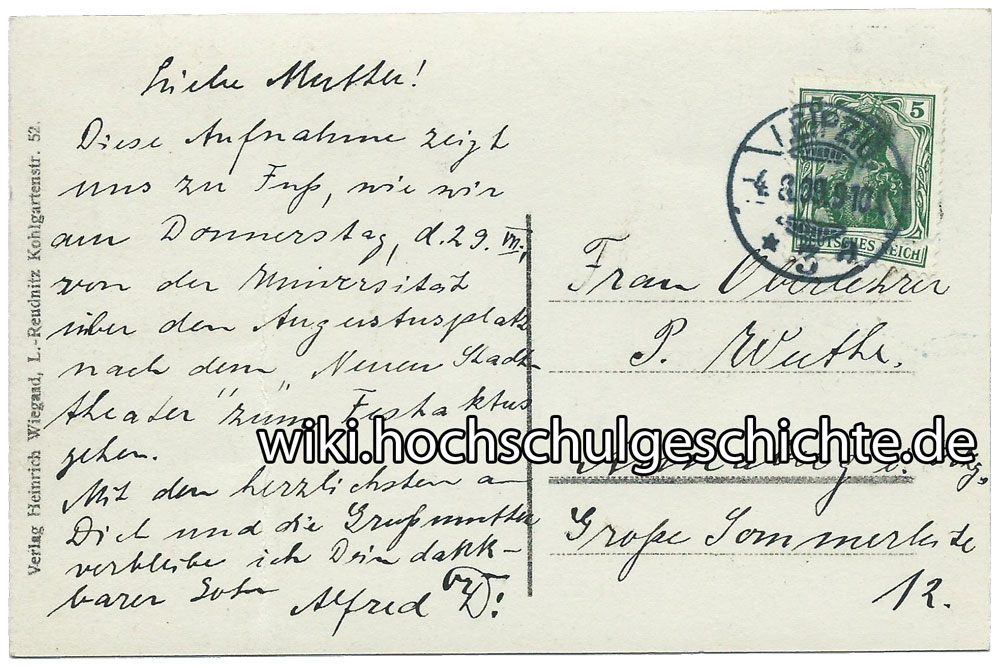 Liebe Mutter!
Diese Aufnahme zeigt
uns zu Fuß, wie wir
am Donnerstag, d. 29. VII.,
von der Universität
über den Augustusplatz
nach dem "Neuen Stadt-
theater" zum Festaktus
gehen.
Mit den herzlichsten an
Dich und die Großmutter
verbleibe ich Dein dank-
barer Sohn
Alfred
Verlag Heinrich Wiegand, L.-Reudnitz Kohlgartenstr. 52.
5 5
DEUTSCHES REICH
LEIPZIG
4. 8.09.9-10
* 3
Frau Oberlehrer
P. Wuthe,
wiki.hochschulgeschichte.de
Große Sommerleite
12.